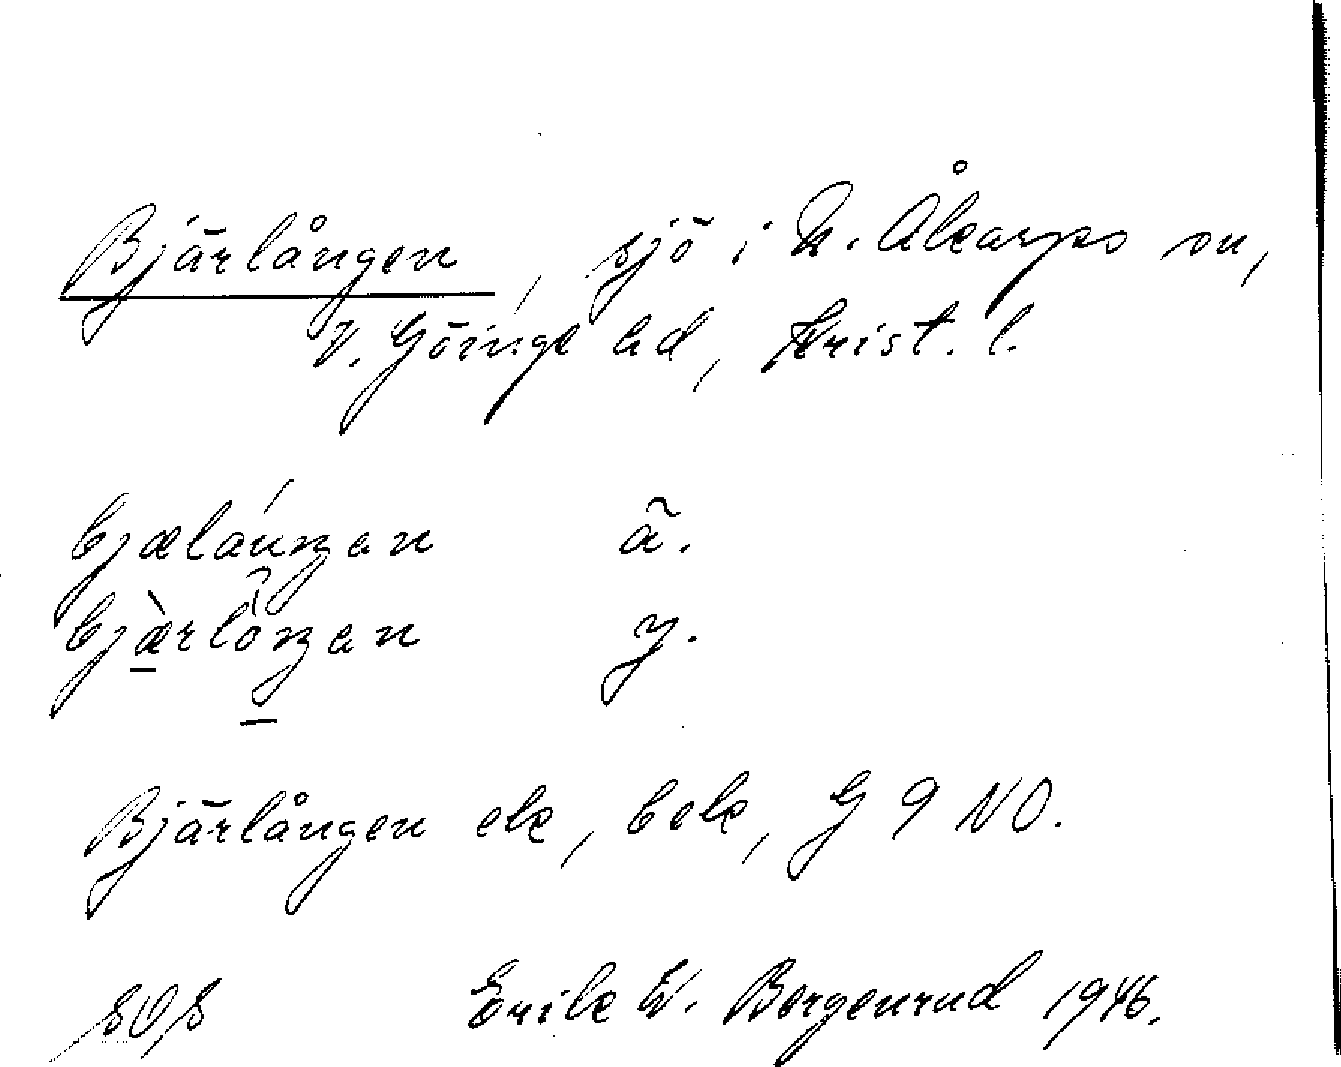 Bjärlången, sjö i N. Åkarps sn,
V. Göinge hd, Krist. l.
bjælánʒen ã.
bjæ̀rlånʒen y.
Bjärlången ek, bek, G 9 NO.
SOS Erik W. Borgenrud 1946.